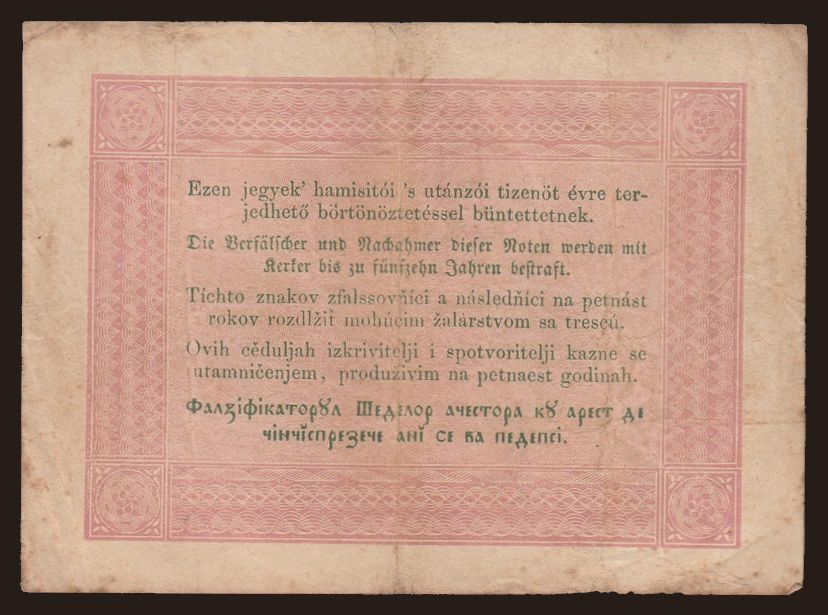 Ezen jegyek’ hamisitói ’s utánzói tizenöt évre ter-
jedhető börtönöztetéssel büntettetnek.
Die Verfälscher und Nachahmer dieser Noten werden mit
Kerker bis zu fünfzehn Jahren bestraft.
Tíchto znakov zfalssovňíci a následňíci na petnást
rokov rozdlžiť mohúcim žalárstvom sa trescú.
Ovih cěduljah izkrivitelji i spotvoritelji kazne se
utamničenjem, produživim na petnaest godinah.
Фалзіфікаторꙋл Шеделор ачестора кꙋ арест де
чінчїспрезече анї се ва педепсі.